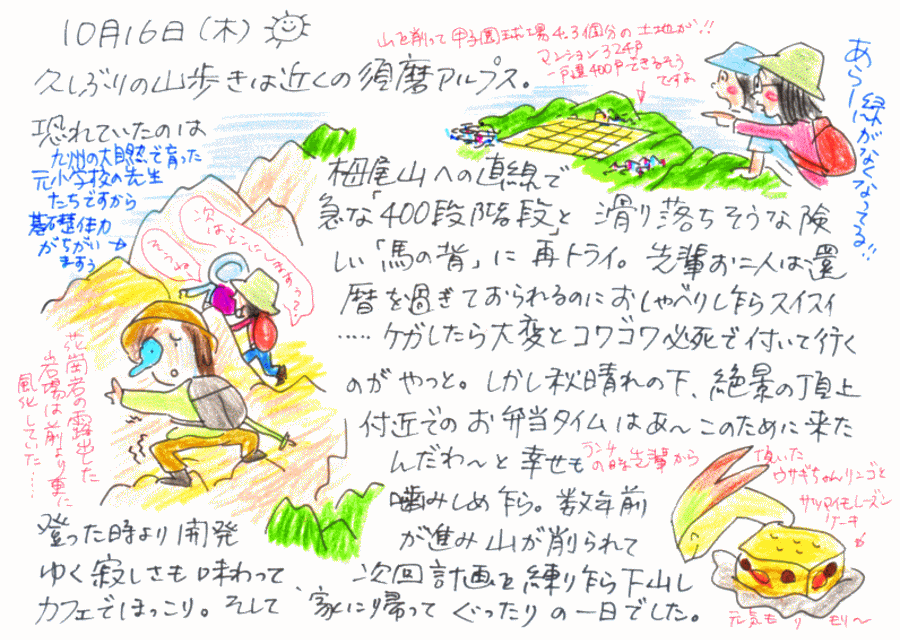 10月16日（木）
久しぶりの山歩きは近くの須磨アルプス。
山を削って甲子園球場4.3個分の土地が!!
マンション324戸
一戸建400戸できるそう
ですよ
あらー緑がなくなってる!!
恐れていたのは
九州の大自然で育った
元小学校の先生
たちですから
基礎体力
がちがい
ますぅ
次はどこにしますぅ?
そうねぇ
栂尾山への直線で
急な「400段階段」と 滑り落ちそうな険
しい「馬の背」に再トライ。先輩お二人は還
暦を過ぎておられるのにおしゃべりし乍らスイスイ
……ケガしたら大変とコワゴワ必死で付いて行く
のがやっと。しかし秋晴れの下、絶景の頂上
付近でのお弁当タイムはあ〜このために来た
んだわ〜と幸せも
噛みしめ乍ら。数年前
花崗岩の露出した
岩場は前より更に
風化していた……
ランチの時先輩から
頂いた
ウサギちゃんリンゴと
サツマイモレーズン
ケーキ
元気もりもり〜
登った時より開発
が進み山が削られて
ゆく寂しさも味わって、次回計画を練り乍ら下山し
カフェでほっこり。そして、家に帰ってぐったりの一日でした。